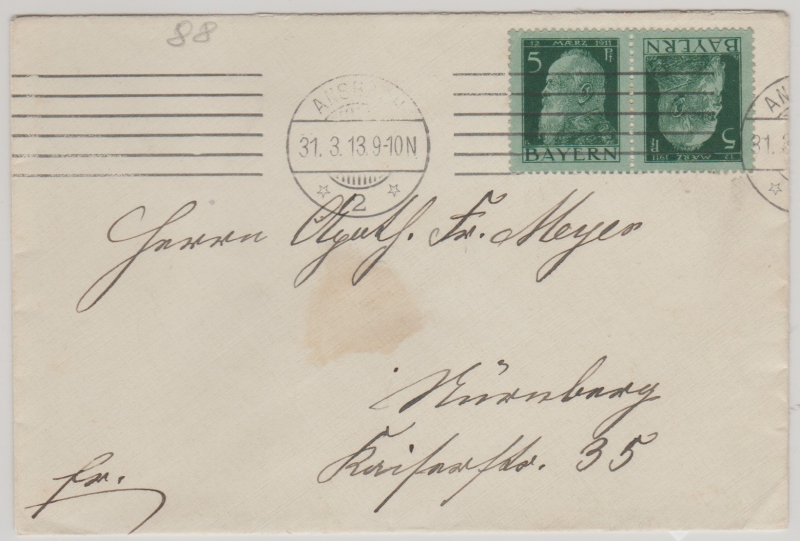 88
5 12. MÄRZ 1911 Pf
BAYERN
5 12. MÄRZ 1911 Pf
BAYERN
ANSBACH
31. 3. 13. 9-10 N
2
AN
31.
Herrn Apoth. Fr. Meyer
Nürnberg
Kaiserstr. 35
fr.